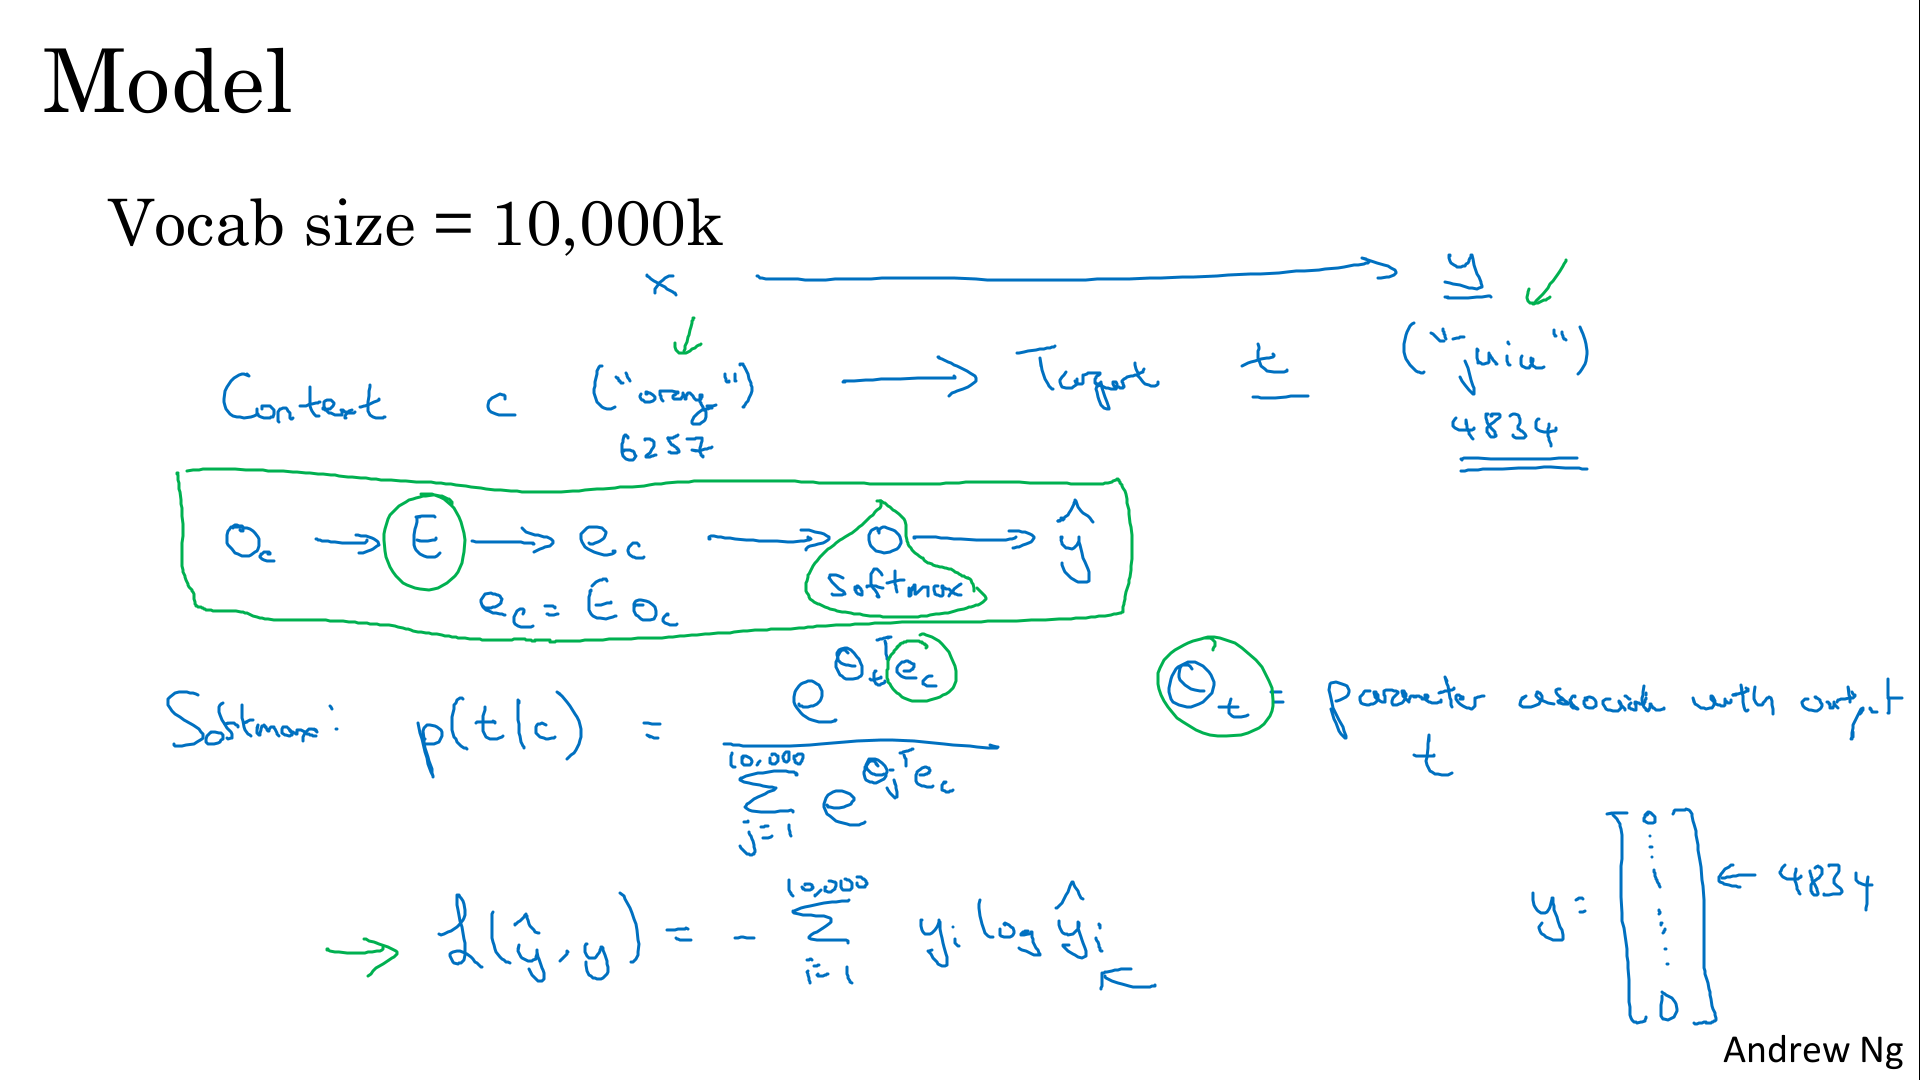 Model
Vocab size = 10,000k
x → y
Context c ("orange") → Target t ("juice")
6257 4834
O_c → E → e_c → o → ŷ
softmax
e_c = E O_c
Softmax: p(t|c) = e^{θ_t^T e_c} / Σ_{j=1}^{10,000} e^{θ_j^T e_c} θ_t = parameter associated with output t
L(ŷ, y) = - Σ_{i=1}^{10,000} y_i log ŷ_i
y = [0 ⋮ 1 ⋮ 0] ← 4834
Andrew Ng